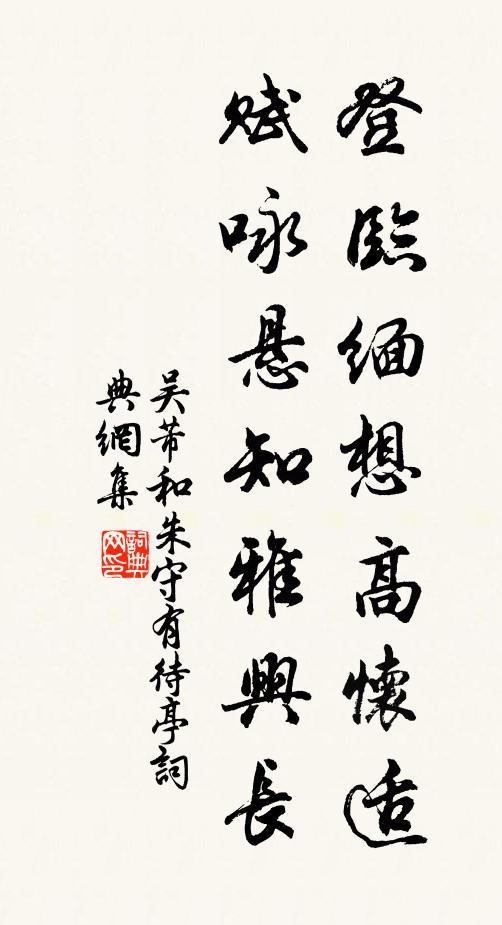 登臨緬想高懷适
賦咏悬知雅興長
吴芾和朱守有待亭詞
典網集
詞典网印